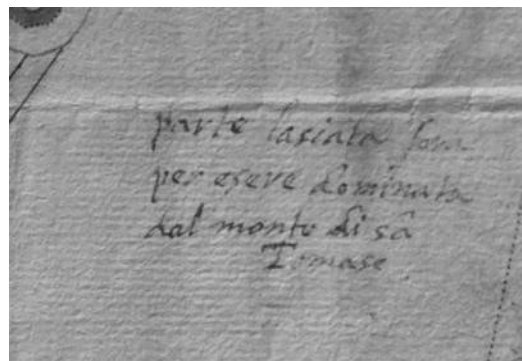 parte lasciata fora
per esere dominata
dal monte di sã
Tomase